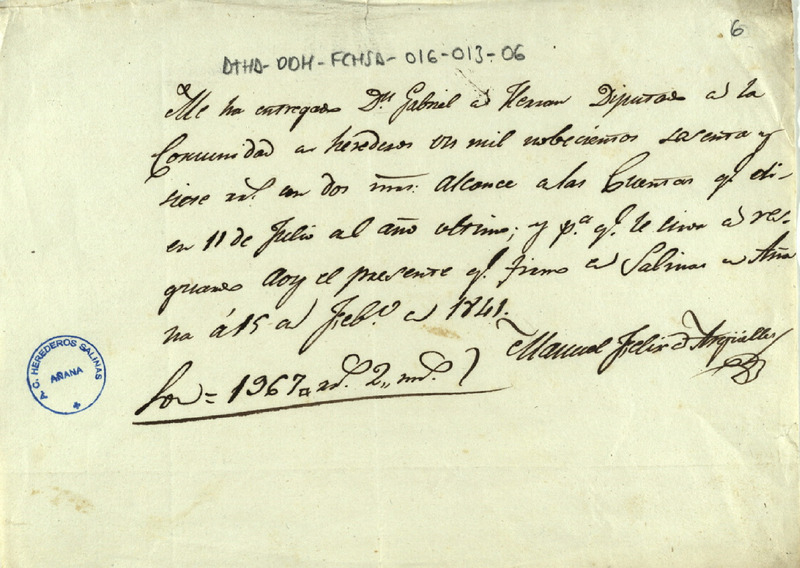 6
ATHA-DDH-FCHSA-016-013-06
Me ha entregado Dn Gabriel de Herran Diputado de la
Comunidad de herederos un mil nobecientos sesenta y
siete rs. con dos mrs: alcance a las Cuentas qe. di-
en 11 de Julio del año ultimo; y pa. qe. le sirva de res-
guardo doy el presente qe. firmo en Salinas de Aña
na á 15 de Febo. de 1841.
Manuel Felix de
Son = 1967 rs. 2,, ms.
A.C. HEREDEROS SALINAS
AÑANA